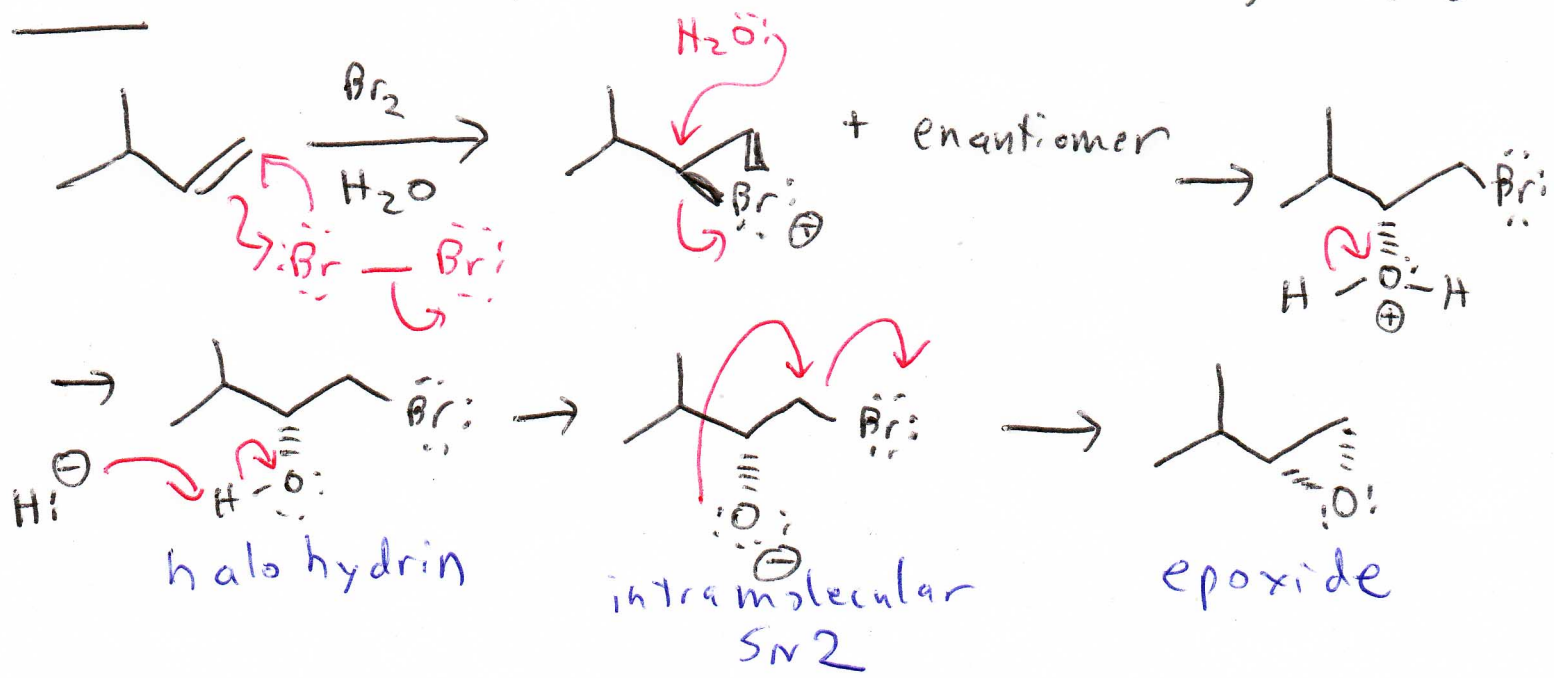 H₂O:
Br₂
H₂O
:Br — Br:
Br: ⊕
+ enantiomer
Br:
H O: H
⊕
Br:
H:⊖
H O:
Br:
:O:
⊖
:O:
halohydrin
intramolecular
SN2
epoxide